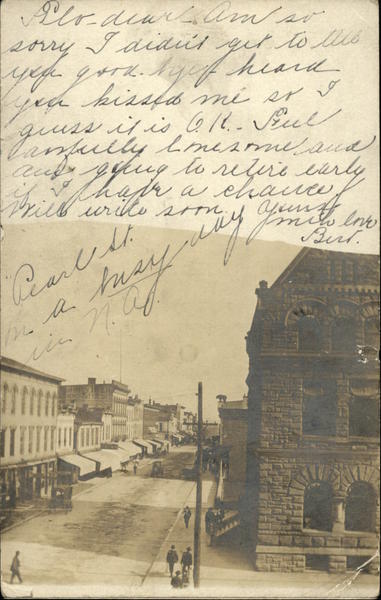 Flo-dear- Am so
sorry I didn't get to tell
you good-bye, heard
you kissed me so I
guess it is O.K. Feel
awfully lonesome and
am going to retire early
if I have a chance.
Will write soon Yours
with love
Bert.
Pearl St.
on a busy day
in N.A.